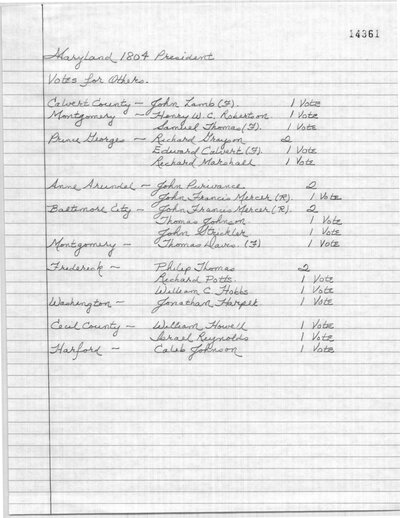 14361
Maryland 1804 President
Votes for Others.
Calvert County - John Lamb (F). 1 Vote
Montgomery - Henry W. C. Robertson 1 Vote
Samuel Thomas (F). 1 Vote
Prince Georges - Richard Grayson 2
Edward Calvert (F). 1 Vote
Richard Marshall 1 Vote
Anne Arundel - John Purviance 2
John Francis Mercer (R). 1 Vote
Baltimore City - John Francis Mercer (R). 2
Thomas Johnson 1 Vote
John Strickler 1 Vote
Montgomery - Thomas Davis. (F) 1 Vote
Frederick - Philip Thomas 2
Richard Potts. 1 Vote
William C. Hobbs 1 Vote
Washington - Jonathan Harper 1 Vote
Cecil County - William Howell 1 Vote
Israel Reynolds 1 Vote
Harford - Caleb Johnson 1 Vote